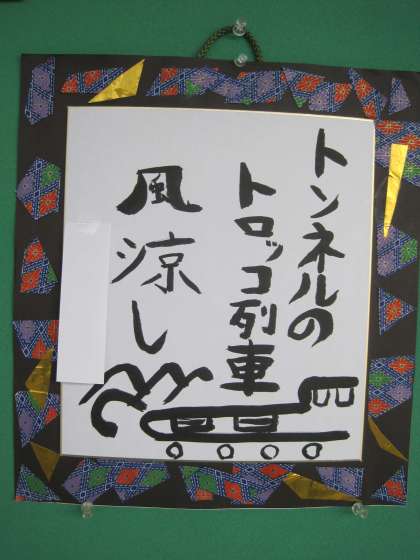 トンネルの
トロッコ列車
風涼し